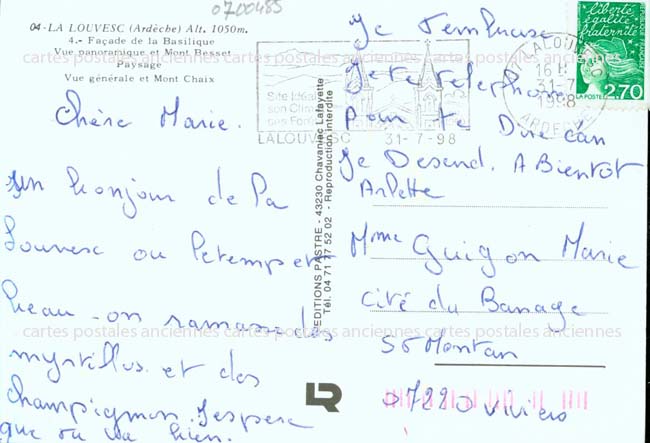 0700485
04-LA LOUVESC (Ardèche) Alt. 1050m.
4.- Façade de la Basilique
Vue panoramique et Mont Besset
Paysage
Vue générale et Mont Chaix
Chère Marie.
un bonjour de La
Louvesc ou le temps est
beau - on ramasse des
myrtillus et des
champignon. Jespere
que tu va bien.
Je Tembrasse
Je te telephone
pour te Dire can
Je Desend. A Bientot
Arlette
Mme Guigon Marie
cité du Banage
St Montan
07220 Viviers
EDITIONS PASTRE - 43230 Chavaniac Lafayette
Tél. 04 71 77 52 02 - Reproduction interdite
LALOUVESC 31-7-98
LALOU
16 H
31-7
1998
ARDECHE
liberté
égalité
fraternité
LA POSTE 2,70
LR
cartes postales anciennes cartes postales anciennes cartes postales anciennes
cartes postales anciennes cartes postales anciennes cartes postales anciennes